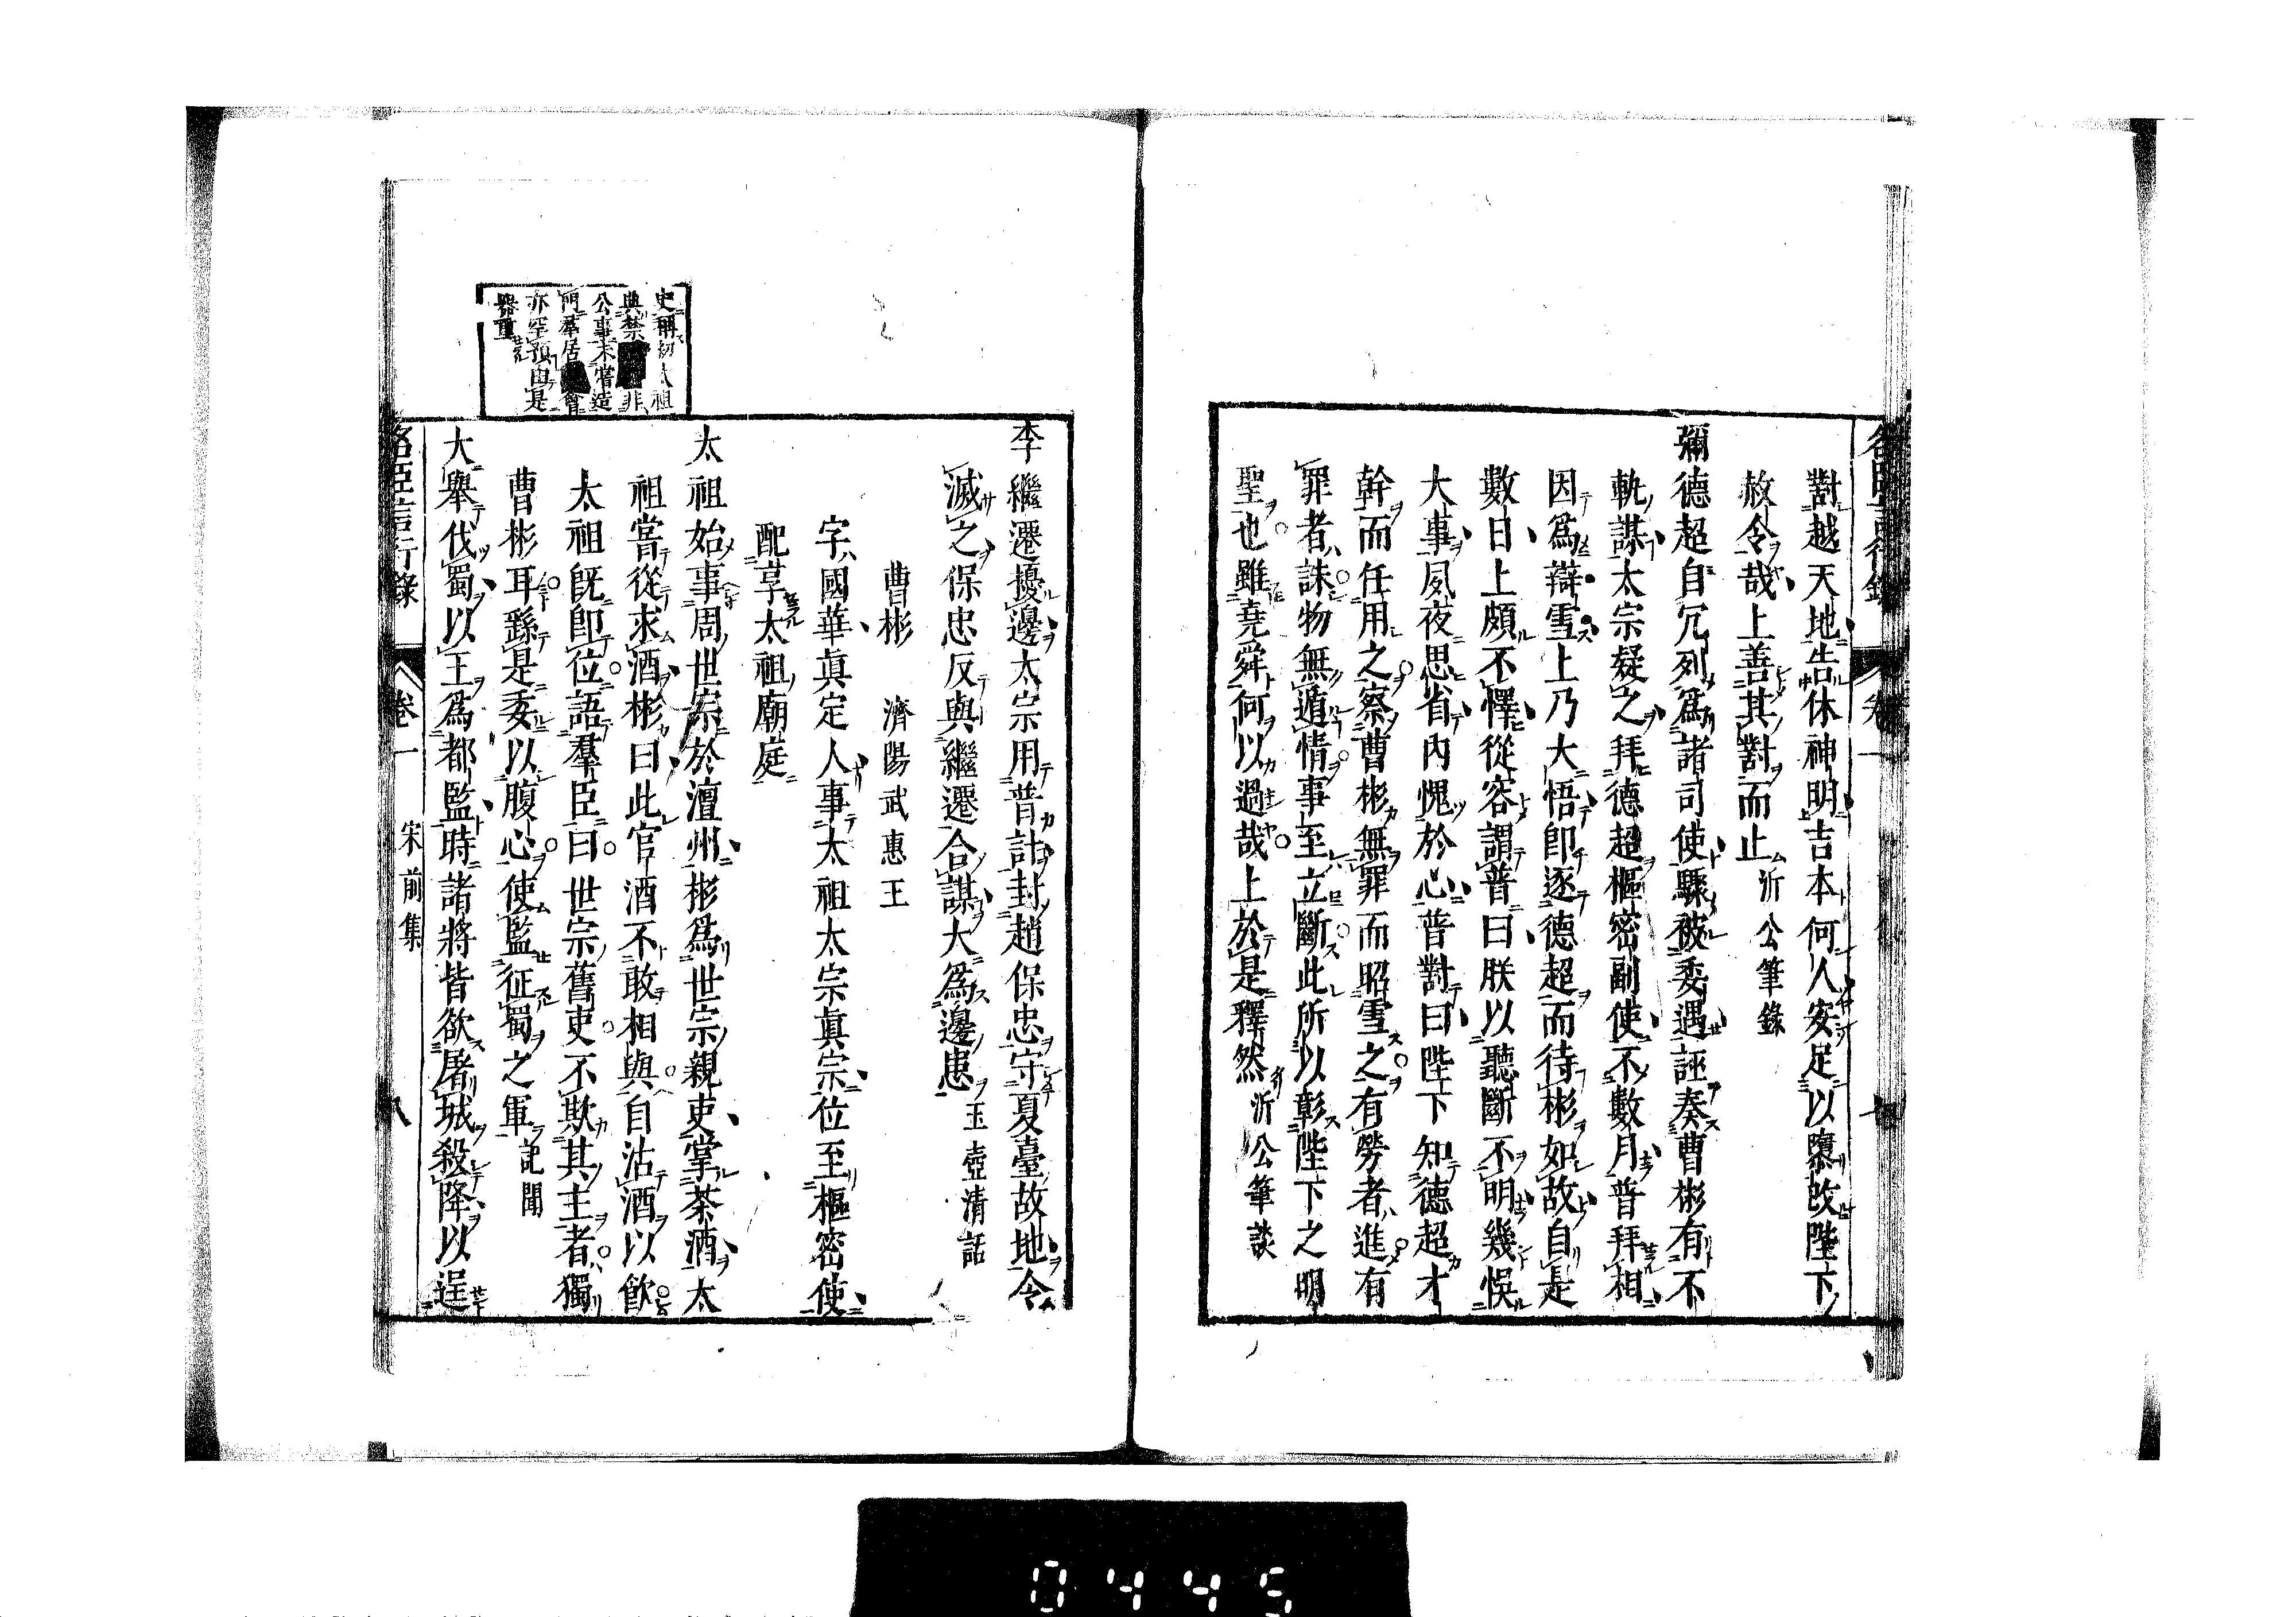 對越天地告休神明吉本何人安足以隳改陛下
赦令哉上善其對而止 沂公筆錄
彌德超自冗列爲諸司使驟被委遇誣奏曹彬有不
軌謀太宗疑之拜德超樞密副使不數月普拜相
因爲辯雪上乃大悟卽逐德超而待彬如故自是
數日上頗不懌從容謂普曰朕以聽斷不明幾悞
大事夙夜思省內愧於心普對曰陛下知德超才
幹而任用之察曹彬無罪而昭雪之有勞者進有
罪者誅物無遁情事至立斷此所以彰陛下之明
聖也雖堯舜何以過哉上於是釋然 沂公筆談
李繼遷擾邊太宗用普計封趙保忠守夏臺故地令
滅之保忠反與繼遷合謀大爲邊患 玉壺清話
曹彬 濟陽武惠王
字國華眞定人事太祖太宗眞宗位至樞密使
配享太祖廟庭
太祖始事周世宗於澶州彬爲世宗親吏掌茶酒太
祖嘗從求酒彬曰此官酒不敢相與自沽酒以飮
太祖旣卽位語羣臣曰世宗舊吏不欺其主者獨
曹彬耳繇是委以腹心使監征蜀之軍 記聞
大舉伐蜀以王爲都監時諸將皆欲屠城殺降以逞
名臣言行錄 卷一 宋前集 八
史稱初太祖
典禁非
公事未嘗造
門羣居會
亦罕預由是
器重
0445